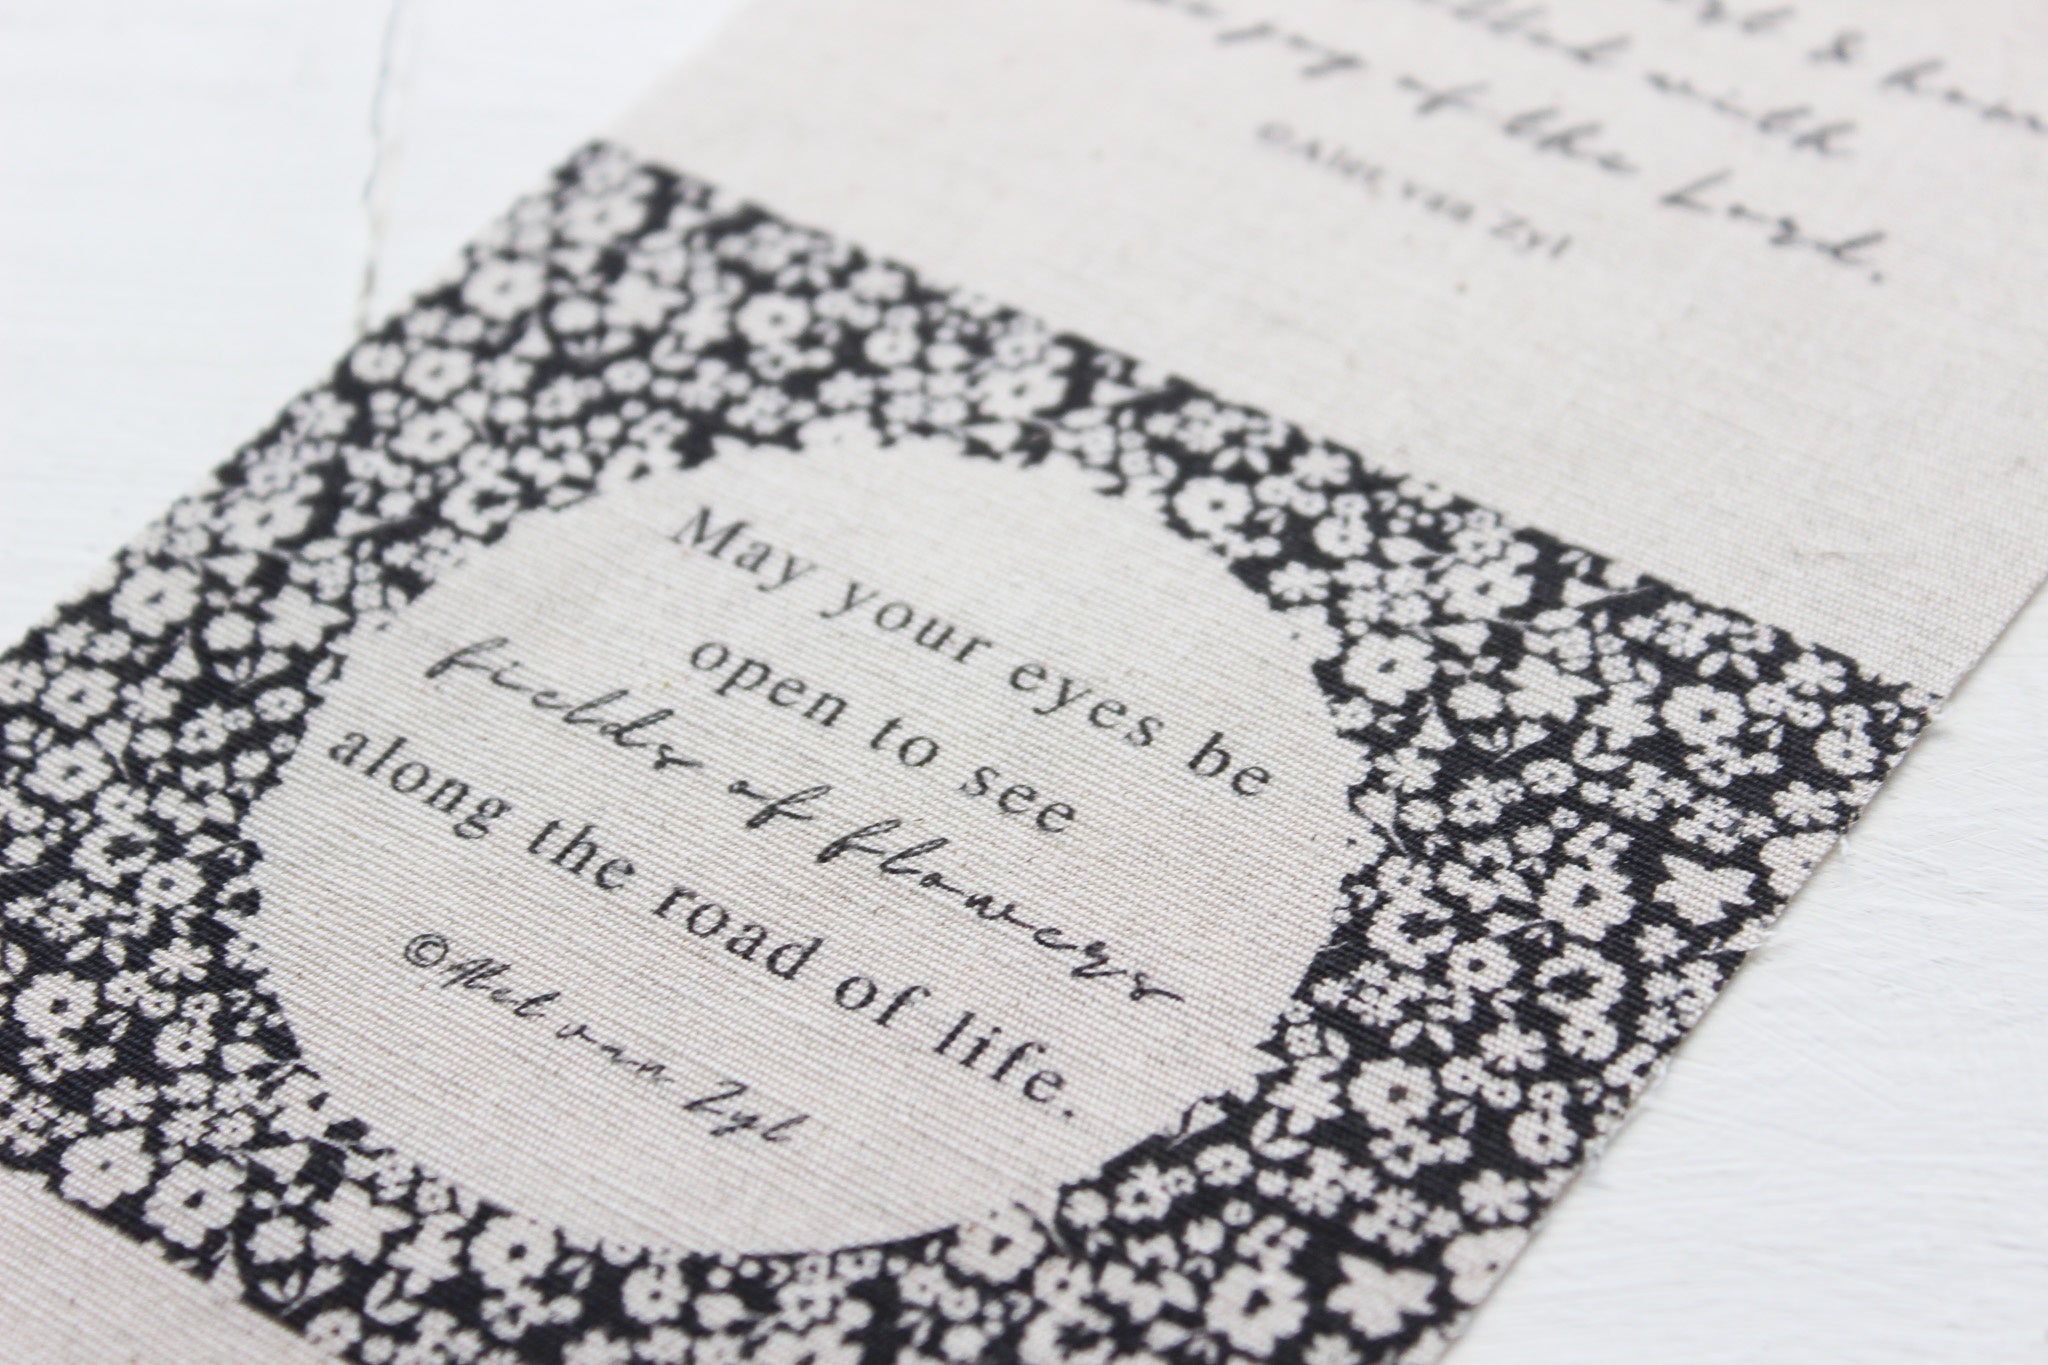 & home
filled with
joy of the Lord.
©Alet van Zyl
May your eyes be
open to see
fields of flowers
along the road of life.
©Alet van Zyl